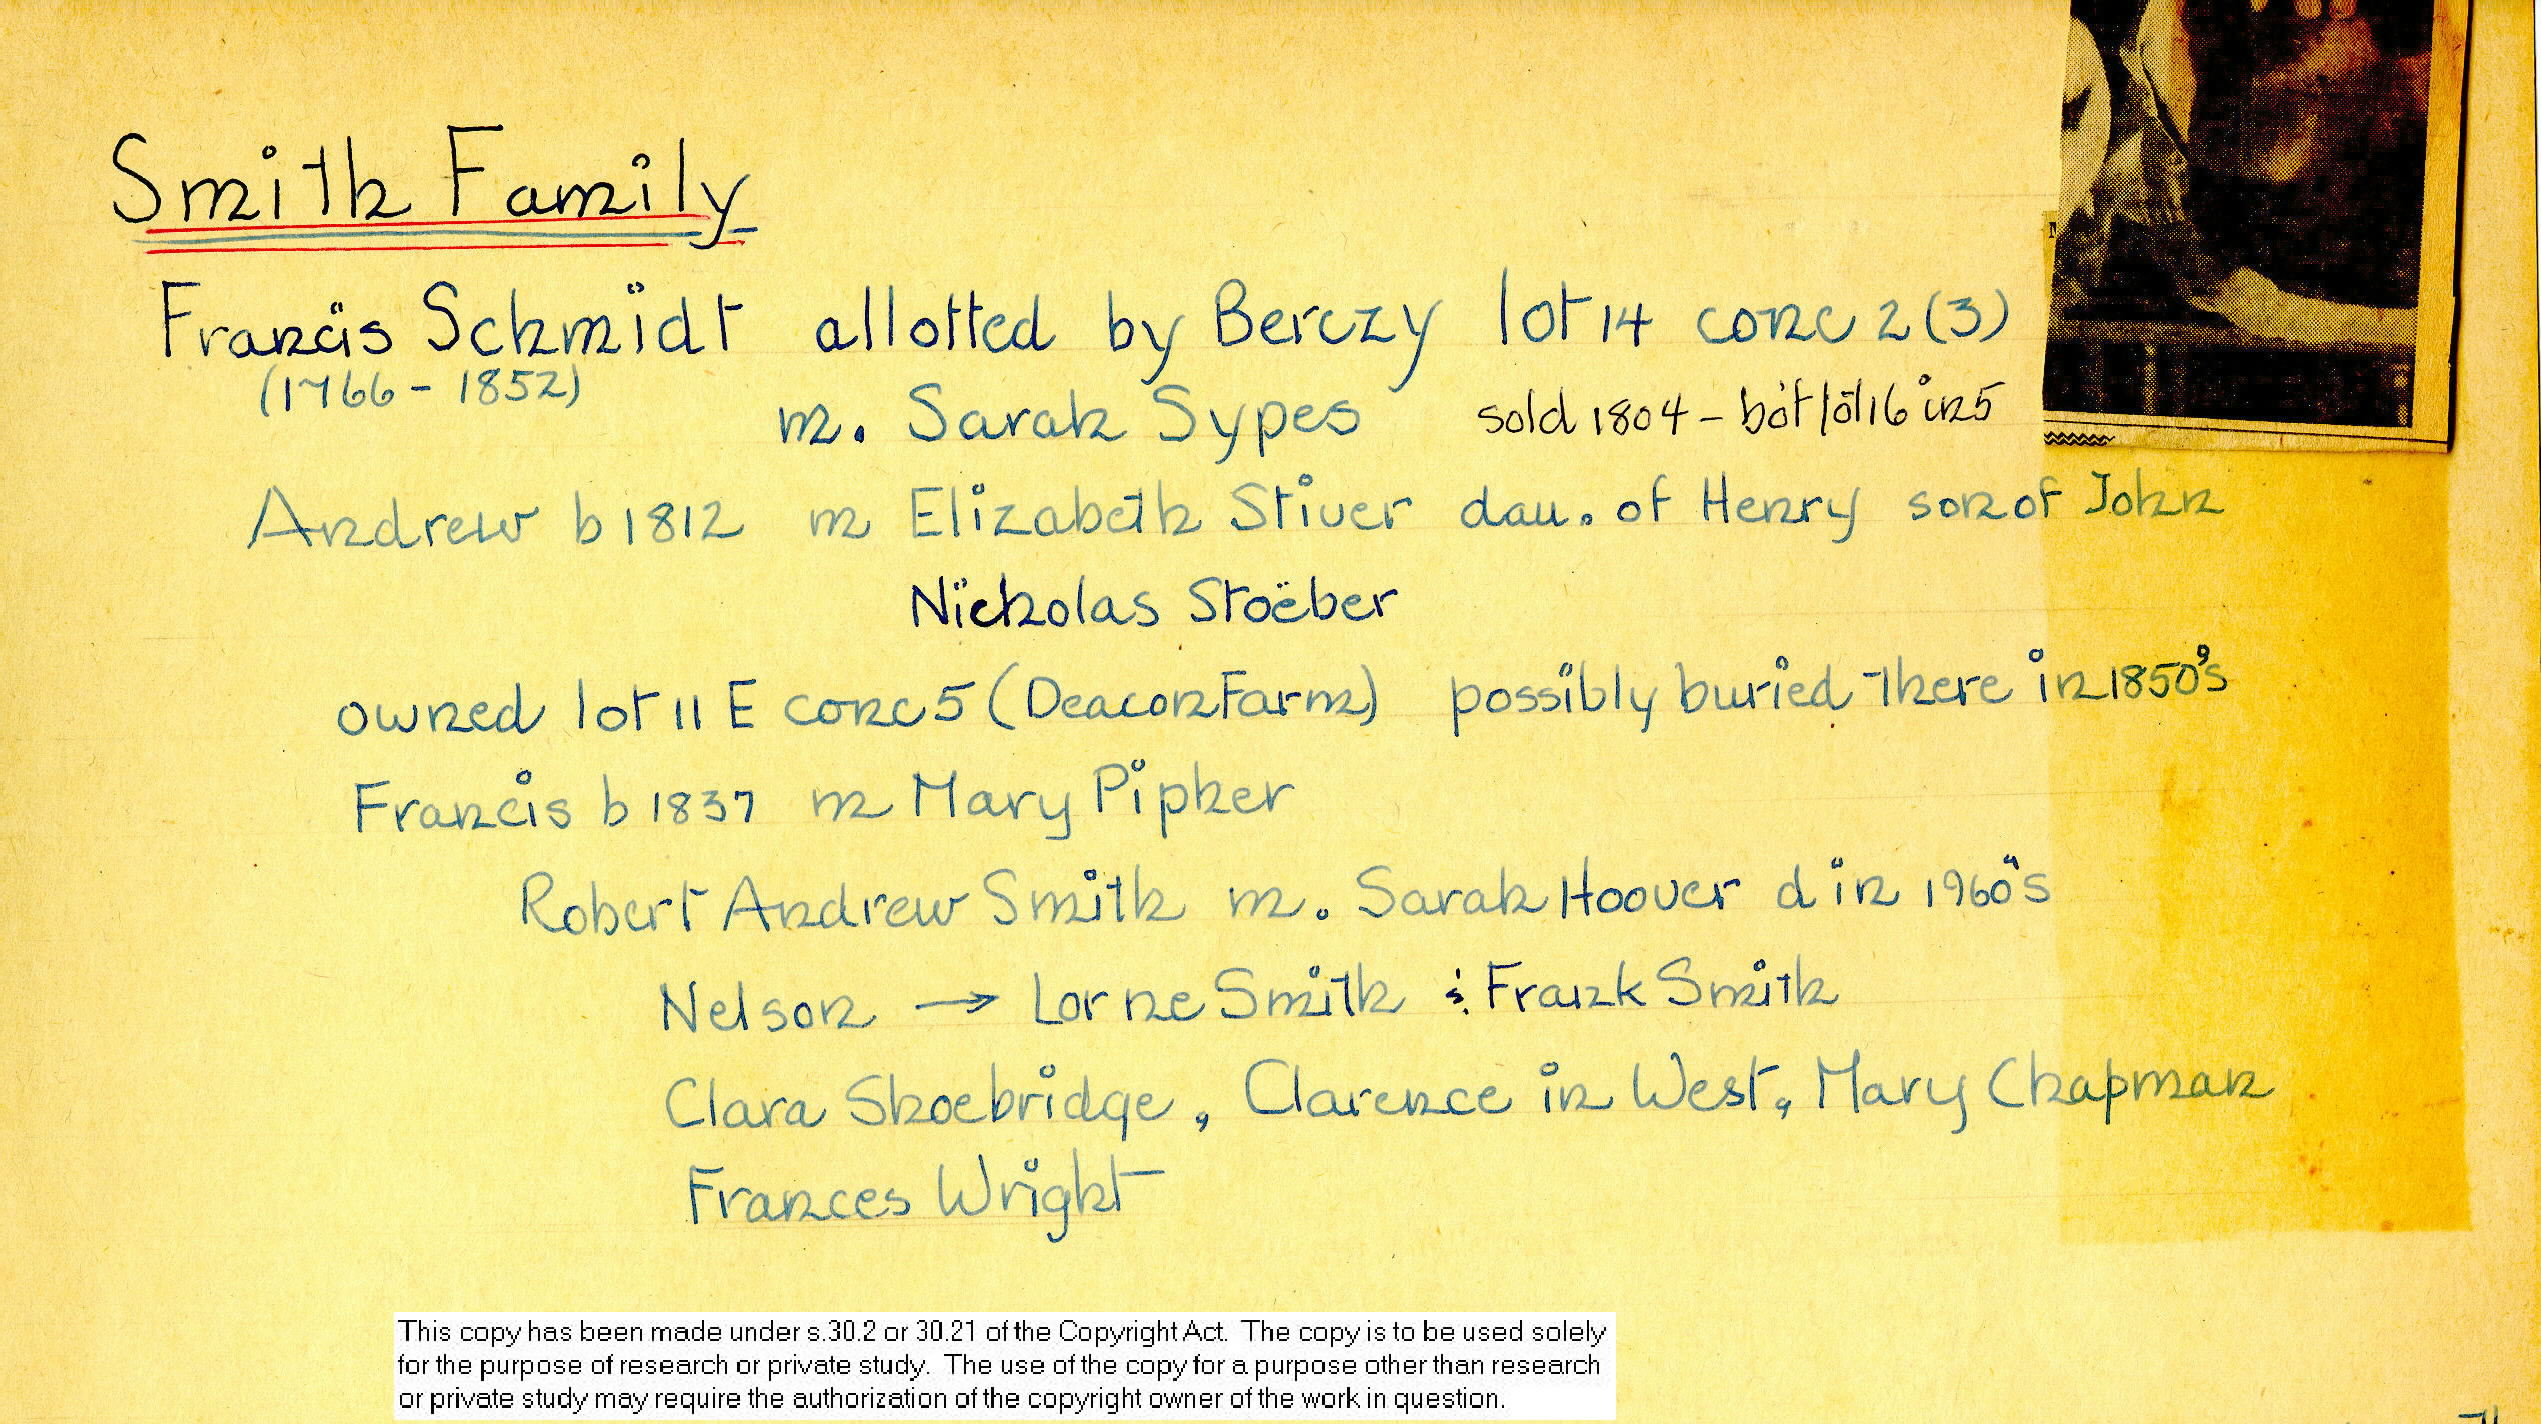 Smith Family
Francis Schmidt allotted by Berczy lot 14 conc 2 (3)
(1766 - 1852) m. Sarah Sypes sold 1804 - bot lot 16 in 5
Andrew b 1812 m Elizabeth Stiver dau. of Henry son of John
Nickolas Stoëber
owned lot 11 E conc 5 (Deacon Farm) possibly buried there in 1850's
Francis b 1837 m Mary Pipher
Robert Andrew Smith m. Sarah Hoover d in 1960's
Nelson → Lorne Smith & Frank Smith
Clara Shoebridge, Clarence in West, Mary Chapman
Frances Wright
This copy has been made under s.30.2 or 30.21 of the Copyright Act. The copy is to be used solely
for the purpose of research or private study. The use of the copy for a purpose other than research
or private study may require the authorization of the copyright owner of the work in question.